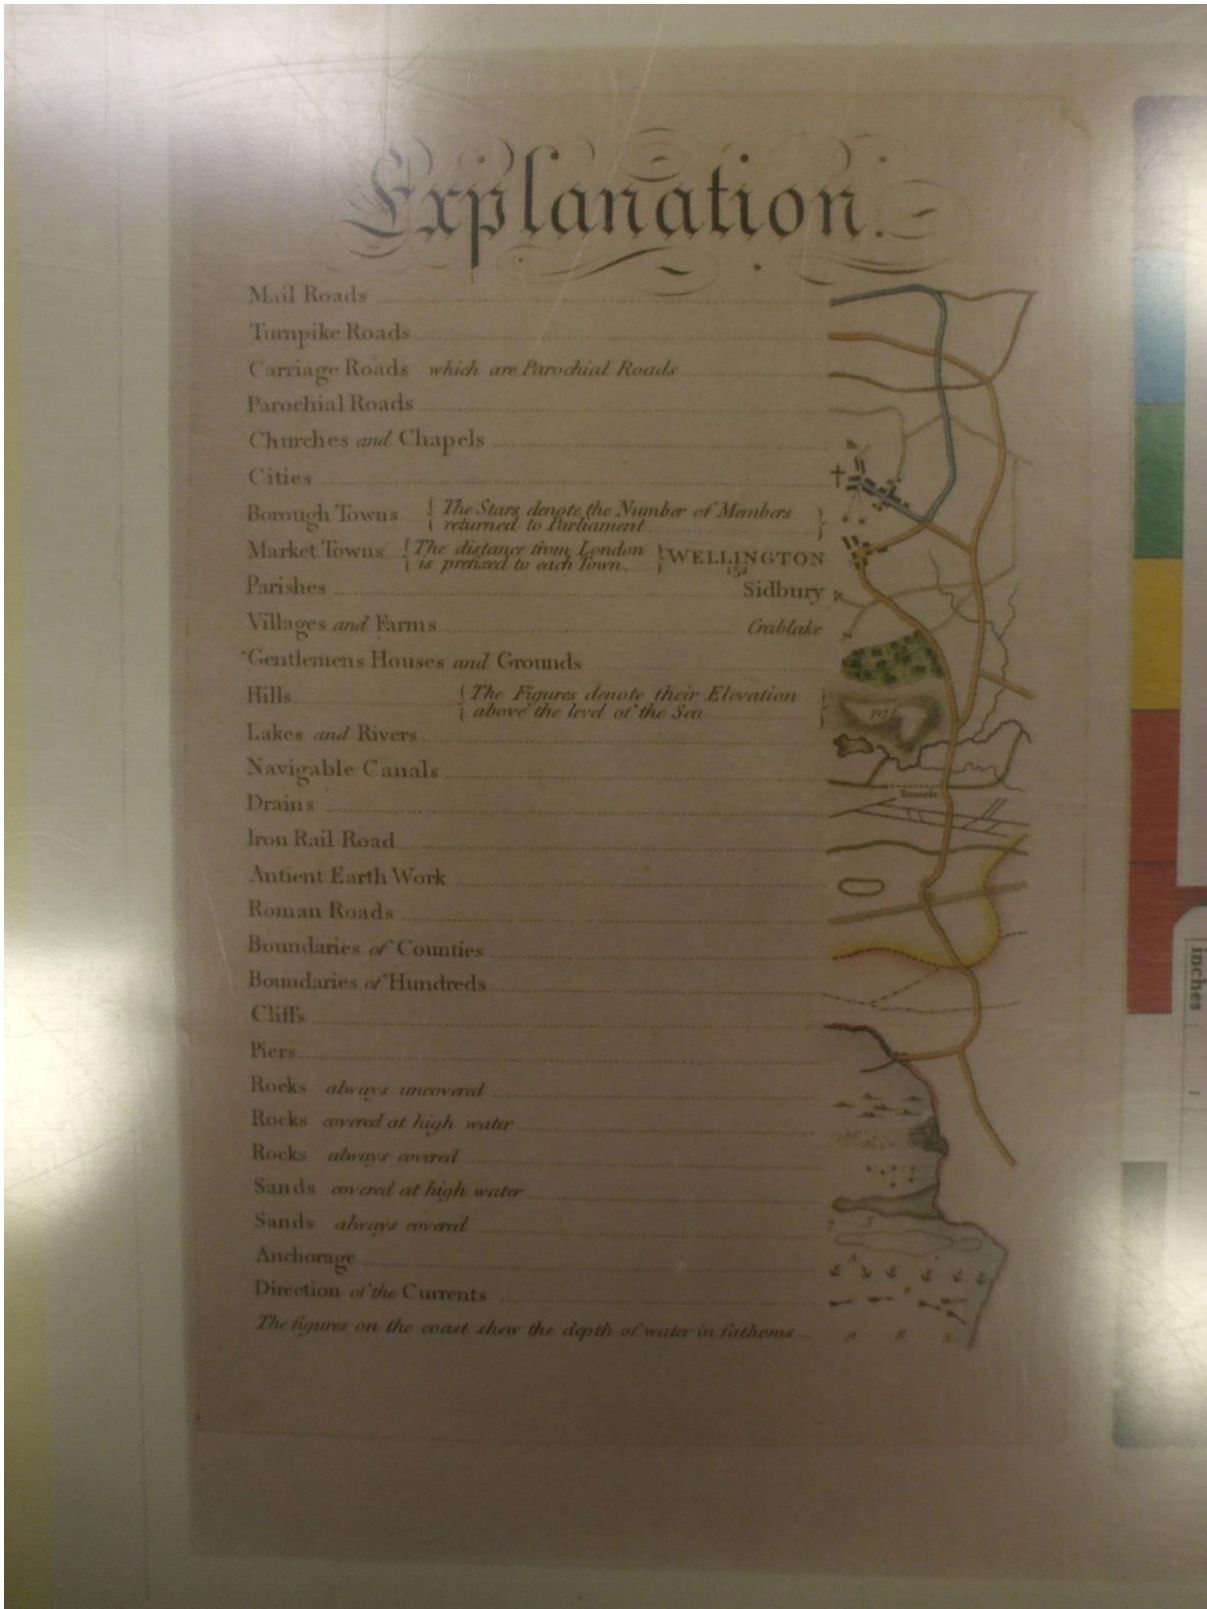 Explanation.
Mail Roads
Turnpike Roads
Carriage Roads which are Parochial Roads
Parochial Roads
Churches and Chapels
Cities
Borough Towns { The Stars denote the Number of Members
returned to Parliament }
Market Towns { The distance from London
is prefixed to each Town. } WELLINGTON
152
Parishes Sidbury
Villages and Farms Crablake
Gentlemens Houses and Grounds
Hills { The Figures denote their Elevation
above the level of the Sea }
Lakes and Rivers
Navigable Canals
Tunnels
Drains
Iron Rail Road
Antient Earth Work
Roman Roads
Boundaries of Counties
Boundaries of Hundreds
Cliffs
Piers
Rocks always uncovered
Rocks covered at high water
Rocks always covered
Sands covered at high water
Sands always covered
Anchorage
Direction of the Currents
The figures on the coast shew the depth of water in fathoms
inches